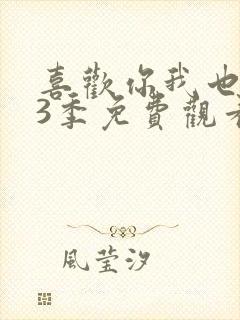 喜歡你我也
3季免費觀看
風莹汐